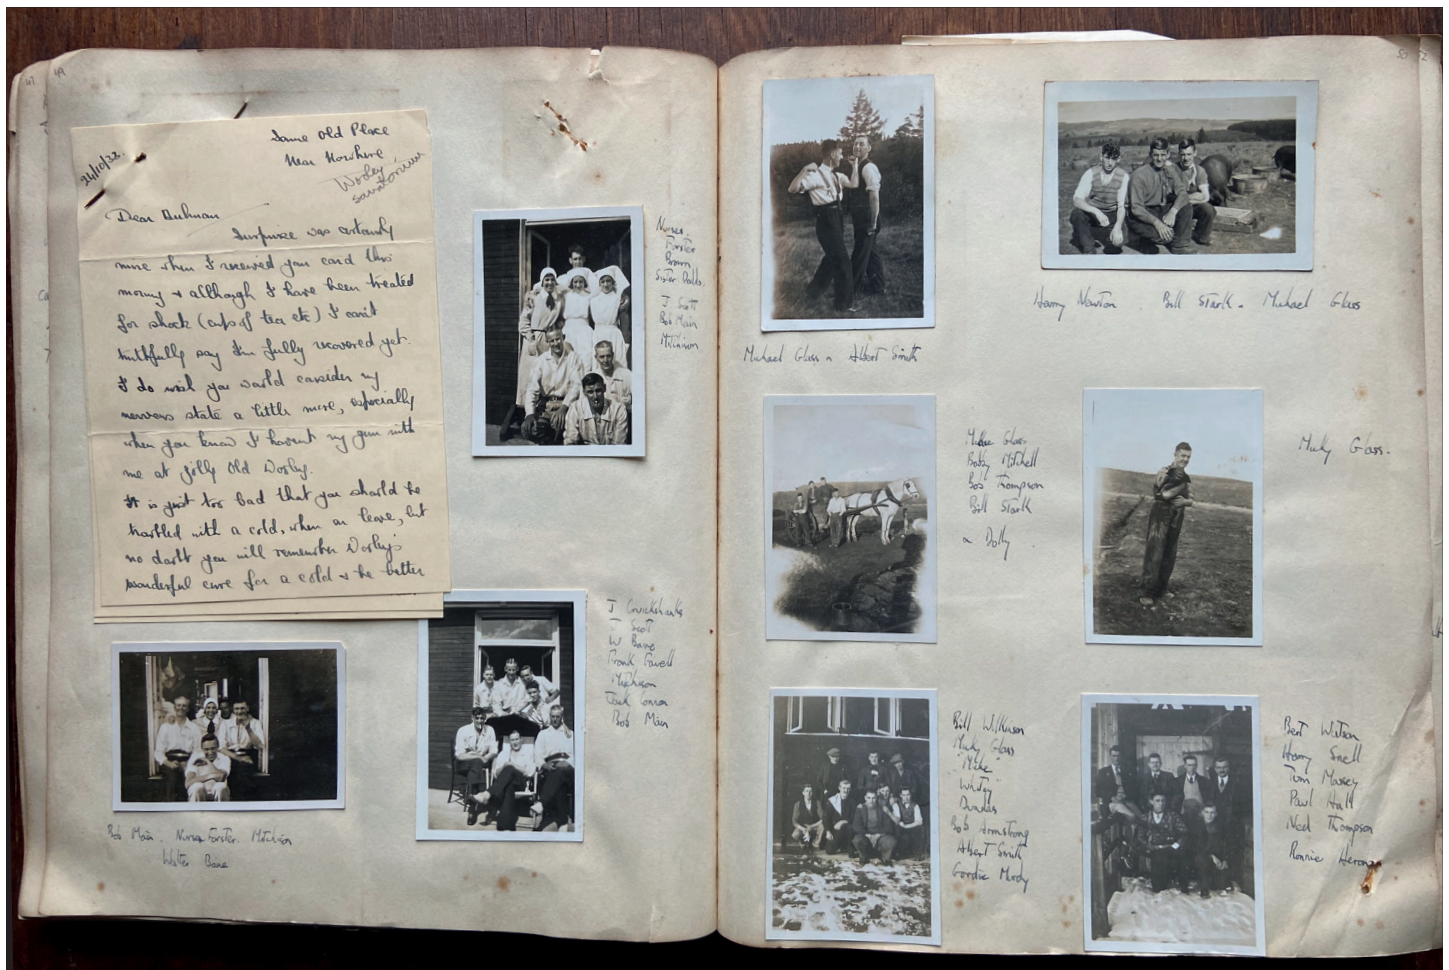 47
49
24/10/32.
Same Old Place
Near Nowhere
Wooley
Sanatorium
Dear Duhman
Surprise was certainly
mine when I received your card this
morning & although I have been treated
for shock (cups of tea etc) I can't
truthfully say I'm fully recovered yet.
I do wish you would consider my
nervous state a little more, especially
when you know I haven't my gun with
me at jolly Old Wooley.
It is just too bad that you should be
troubled with a cold, when on leave, but
no doubt you will remember Wooley's
wonderful cure for a cold & be better
Nurses.
Forster
Brown
Sister Dodds.
J Scott
Bob Main
Mitchison
J Cruickshanks
J Scott
W Bane
Frank Favell
Mitchison
Jack Connor
Bob Main
Bob Main. Nurse Forster. Mitchison
Walter Bane
50
52
Michael Glass & Albert Smith
Harry Newton. Bill Stark. Michael Glass
Mickie Glass
Bobby Mitchell
Bob Thompson
Bill Stark
& Dolly
Micky Glass.
Bill Wilkinson
Micky Glass
"Mike"
Whitey
Dundas
Bob Armstrong
Albert Smith
Gordie Murdy
Bert Watson
Harry Snell
Tom Massey
Paul Hall
Ned Thompson
Ronnie Heron